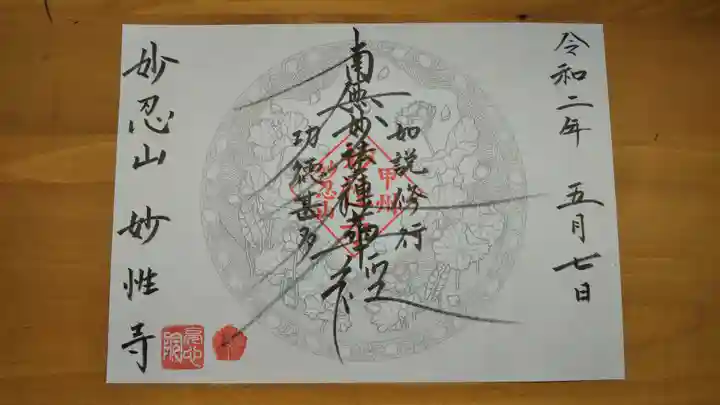 令和二年 五月七日
如説修行
南無妙法蓮華経
功徳甚多
甲州
妙忍山
妙忍山 妙性寺